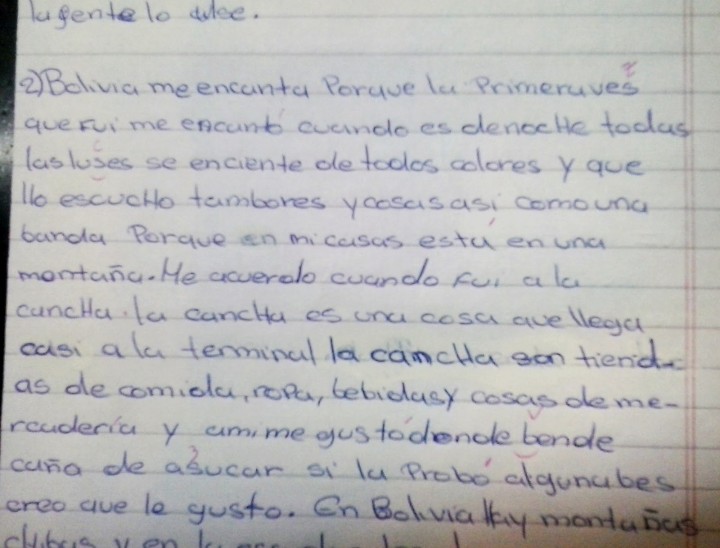 la gente lo dulce.
2) Bolivia me encanta Porque la Primeraves
que fui me encantó cuando es de nocHe todas
las luses se enciente de todos colores y que
llo escucHo tambores y cosas asi como una
banda Porque en mi casas esta en una
montaña. He acuerdo cuando fui a la
cancHa. la cancHa es una cosa que llega
casi a la terminal la cancHa son tiend-
as de comida, ropa, bebidas y cosas de me-
rcaderia y a mi me gusto donde bende
caña de asucar si la Probó alguna bes
creo que le gusto. En Bolivia Hay montañas